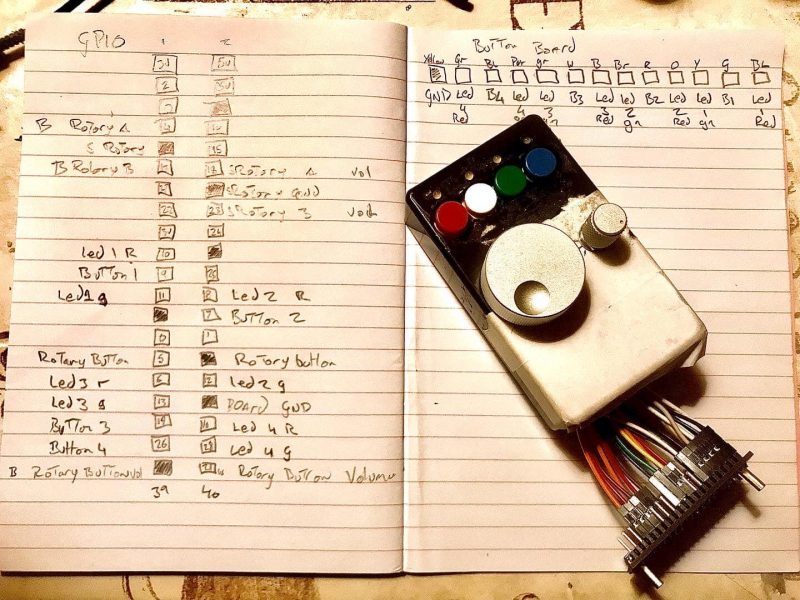 GPIO 1 2
3V 5V
2 5V
3
B Rotary A 4 14
S Rotary 15
B Rotary B 18 SRotary A Vol
SRotary Gnd
22 23 SRotary B
3V 24
Led 1 R 10
Button 1 9 25
Led1g 11 8 Led 2 R
7 Button 2
0 1
Rotary Button 5 Rotary button
Led 3 r 6 12 Led 2 g
Led 3 g 13 Board GND
Button 3 19 16 Led 4 R
Button 4 26 20 Led 4 g
B Rotary Button Vol 21 Rotary Button Volume
39 40
Button Board
Yellow Gr BL Pur gr W B Br R O Y G BL
GND Led B4 Led Led B3 Led Led B2 Led Led B1 Led
4 4 3 3 2 2 1 1
Red gn Red gn Red gn Red